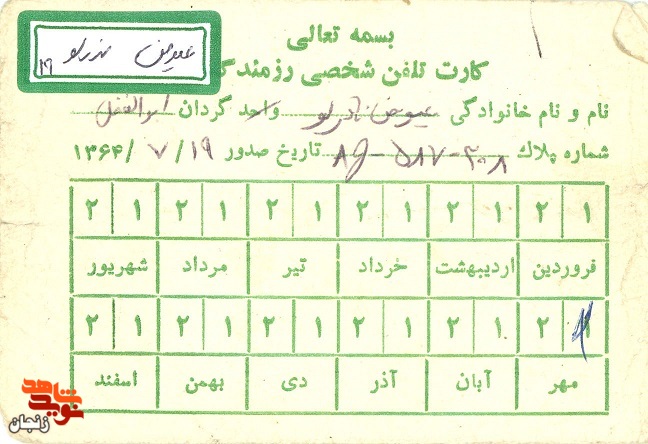 بسمه تعالی
کارت تلفن شخصی رزمندگ
عیوض نادرلو ۱۹
نام و نام خانوادگی عیوض نادرلو واحد گردان ابوالفضل
شماره پلاک AJ-۵۸۷-۳۰۸ تاریخ صدور ۱۳۶۴/۷/۱۹
۱ ۲ ۱ ۲ ۱ ۲ ۱ ۲ ۱ ۲ ۱ ۲
فروردین اردیبهشت خرداد تیر مرداد شهریور
۱ ۲ ۱ ۲ ۱ ۲ ۱ ۲ ۱ ۲ ۱ ۲
مهر آبان آذر دی بهمن اسفند
نوید شاهد
زنجان